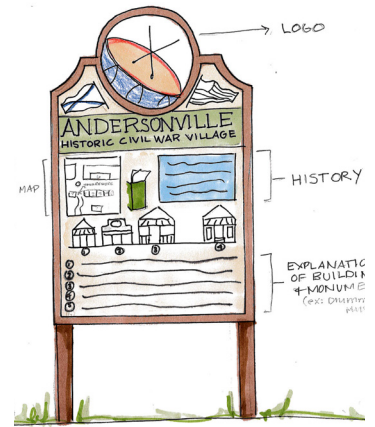 LOGO
ANDERSONVILLE
HISTORIC CIVIL WAR VILLAGE
MAP
HISTORY
1 2 3 4
EXPLANATIO
OF BUILDIN
+ MONUME
(ex:
1
2
3
4
5